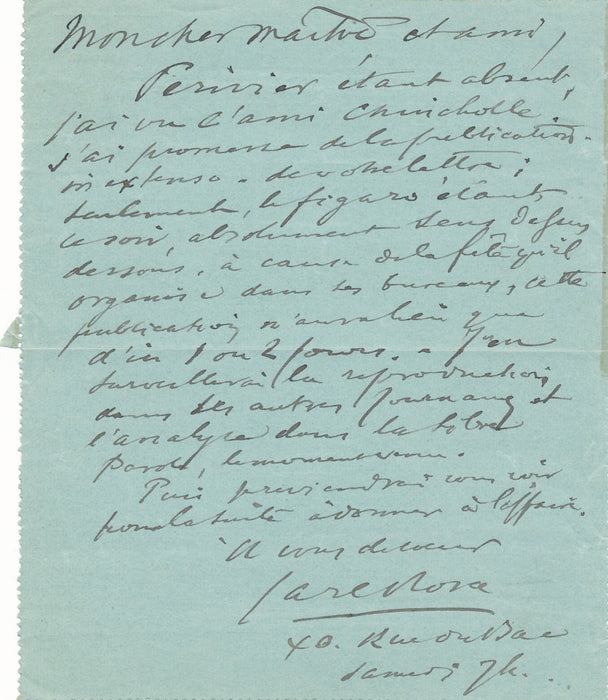 Mon cher maître et ami,
Périvier étant absent,
j'ai vu l'ami Chincholle.
J'ai promesse de la publication -
in extenso - de votre lettre ;
seulement, le figaro étant,
ce soir, absolument sens dessus
dessous, à cause de la fête qu'il
organise dans ses bureaux, cette
publication n'aura lieu que
d'ici 1 ou 2 jours. - J'en
surveillerai la reproduction
dans les autres journaux et
l'analyse dans la libre
Parole, le moment venu.
Puis je viendrai vous voir
pour la suite à donner à l'affaire.
A vous de cœur
Rue du Bac
Samedi 7h.